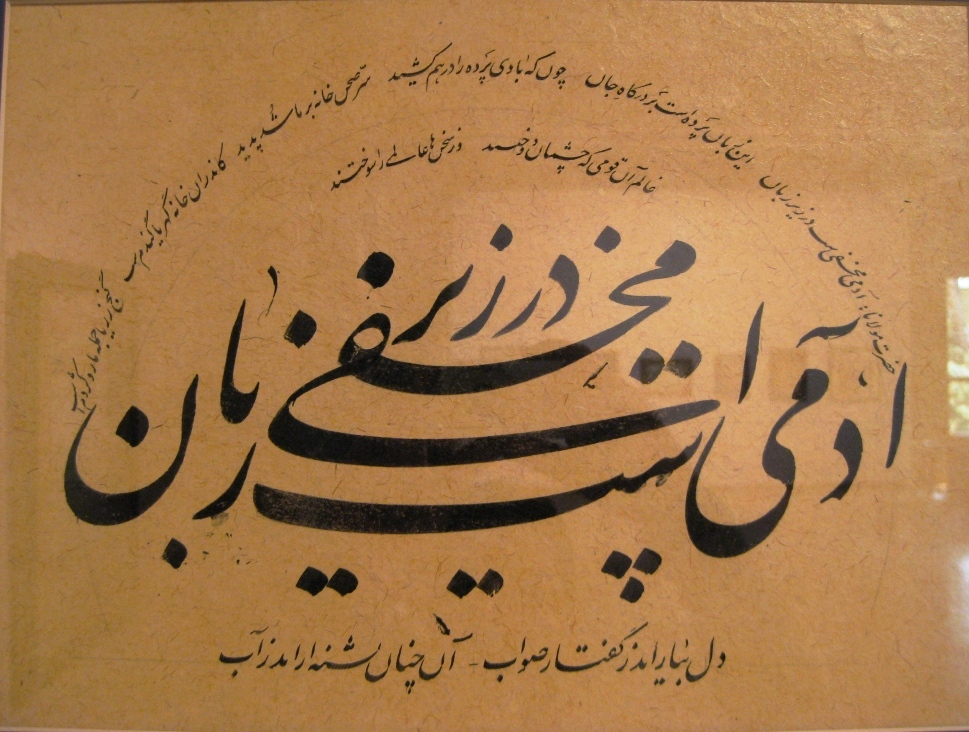 حضرت مولانا: آدمی مخفی است در زیر زبان این زبان پرده است بر درگاه جان چون که بادی پرده را در هم کشید سرّ صحن خانه بر ما شد پدید کاندر آن خانه گهر یا گندم است گنج زر یا جمله مار و کژدم است
ظالم آن قومی که چشمان دوختند وز سخن‌ها عالمی را سوختند
آدمی مخفیست در زیر زبان
دل بیارامد ز گفتار صواب - آن چنان تشنه آرامد ز آب